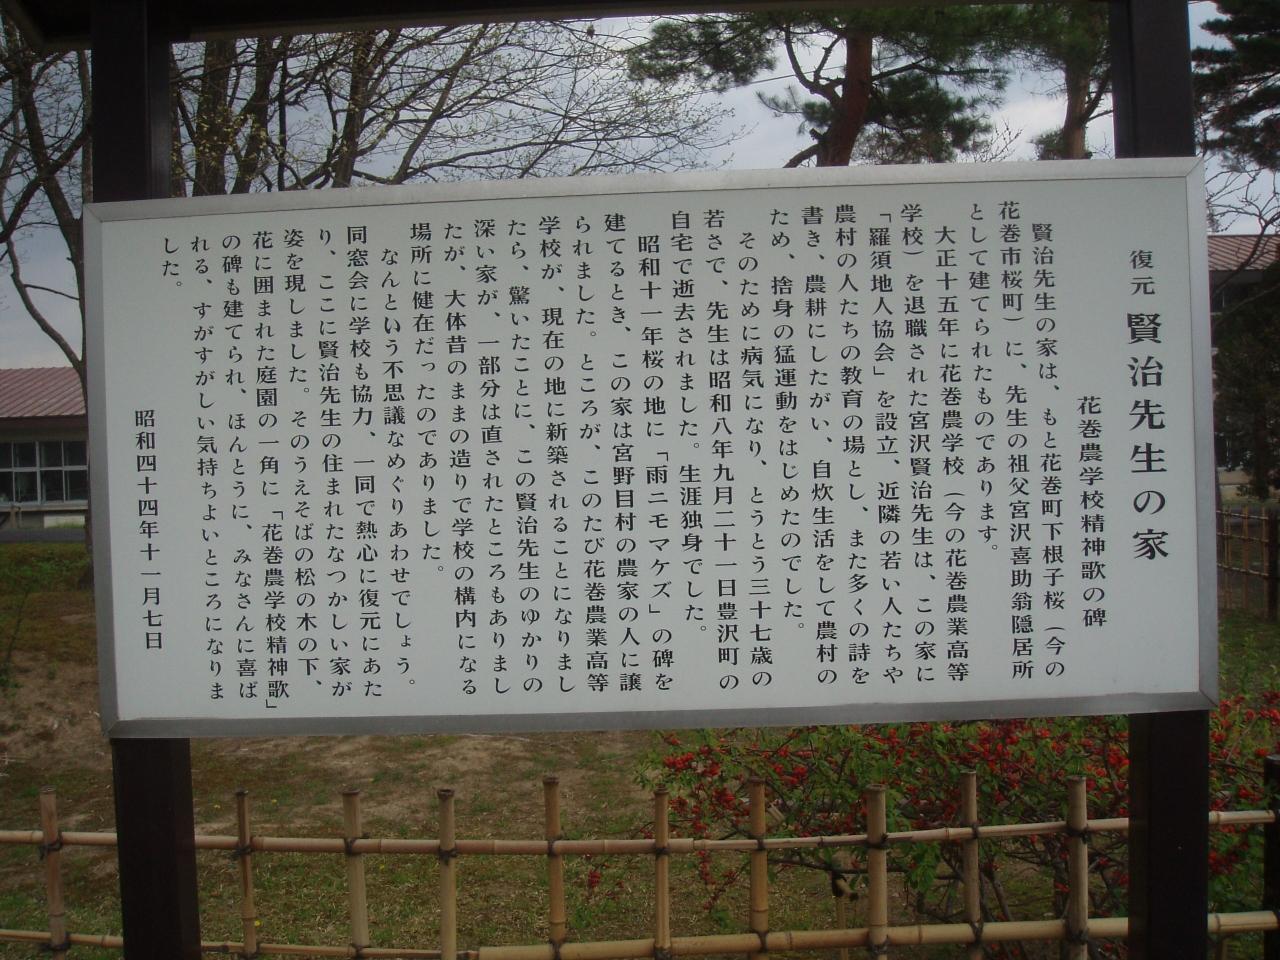 復元 賢治先生の家
花巻農学校精神歌の碑
賢治先生の家は、もと花巻町下根子桜（今の
花巻市桜町）に、先生の祖父宮沢喜助翁隠居所
として建てられたものであります。
大正十五年に花巻農学校（今の花巻農業高等
学校）を退職された宮沢賢治先生は、この家に
「羅須地人協会」を設立、近隣の若い人たちや
農村の人たちの教育の場とし、また多くの詩を
書き、農耕にしたがい、自炊生活をして農村の
ため、捨身の猛運動をはじめたのでした。
そのために病気になり、とうとう三十七歳の
若さで、先生は昭和八年九月二十一日豊沢町の
自宅で逝去されました。生涯独身でした。
昭和十一年桜の地に「雨ニモマケズ」の碑を
建てるとき、この家は宮野目村の農家の人に譲
られました。ところが、このたび花巻農業高等
学校が、現在の地に新築されることになりまし
たら、驚いたことに、この賢治先生のゆかりの
深い家が、一部分は直されたところもありまし
たが、大体昔のままの造りで学校の構内になる
場所に健在だったのでありました。
なんという不思議なめぐりあわせでしょう。
同窓会に学校も協力、一同で熱心に復元にあた
り、ここに賢治先生の住まれたなつかしい家が
姿を現しました。そのうえそばの松の木の下、
花に囲まれた庭園の一角に「花巻農学校精神歌」
の碑も建てられ、ほんとうに、みなさんに喜ば
れる、すがすがしい気持ちよいところになりま
した。
昭和四十四年十一月七日